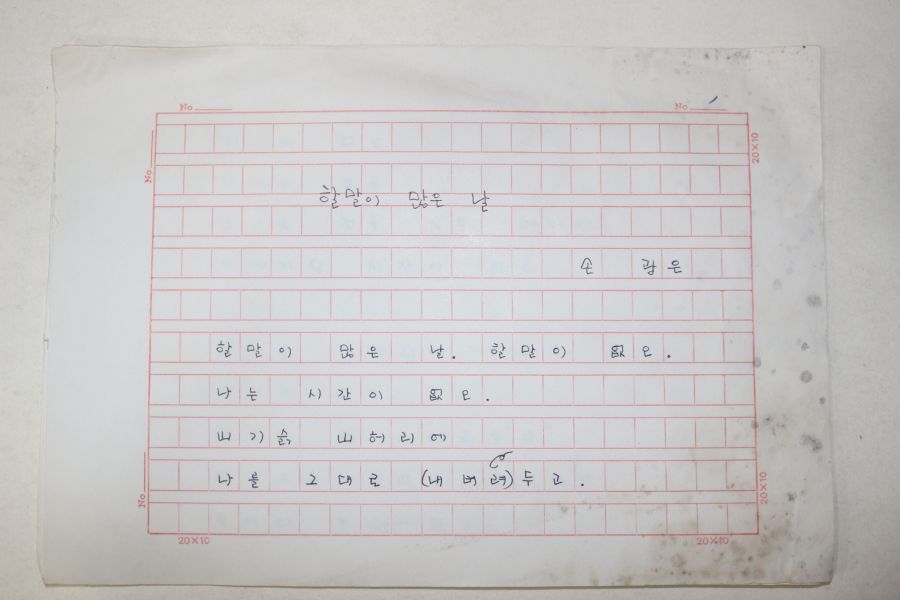 No
No
No
20×10
할말이 많은 날
손 광은
할말이 많은 날. 할말이 없오.
나는 시간이 없오.
山기슭 山허리에
나를 그대로 (내버려)두고.
No
20×10
20×10
20×10